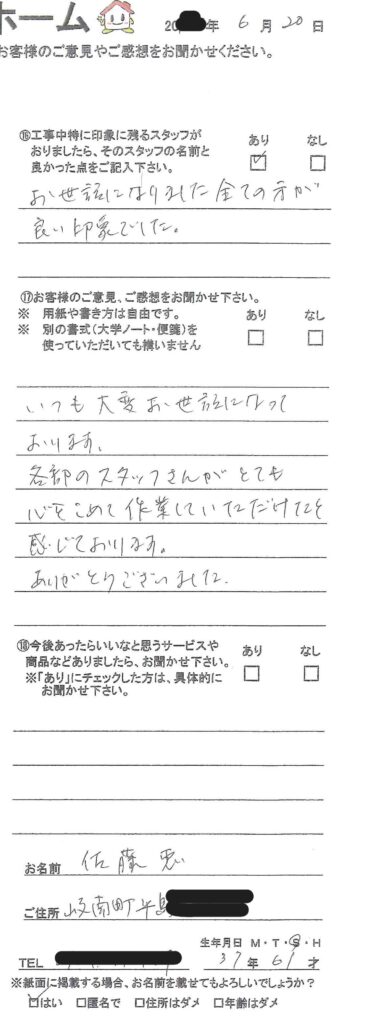 ホーム 20 年 6 月 20 日
お客様のご意見やご感想をお聞かせください。
⑯工事中特に印象に残るスタッフが
おりましたら、そのスタッフの名前と
良かった点をご記入下さい。
あり なし
お世話になりました全ての方が
良い印象でした。
⑰お客様のご意見、ご感想をお聞かせ下さい。
※ 用紙や書き方は自由です。
※ 別の書式(大学ノート・便箋)を
使っていただいても構いません
あり なし
いつも大変お世話になって
おります。
各部のスタッフさんがとても
心をこめて作業していただけたと
感じております。
ありがとうございました.
⑱今後あったらいいなと思うサービスや
商品などありましたら、お聞かせ下さい。
※「あり」にチェックした方は、具体的に
お聞かせ下さい。
あり なし
お名前 佐藤
ご住所 岐南町平島
生年月日 M・T・S・H
TEL 37年 61才
※紙面に掲載する場合、お名前を載せてもよろしいでしょうか?
□はい □匿名で □住所はダメ □年齢はダメ